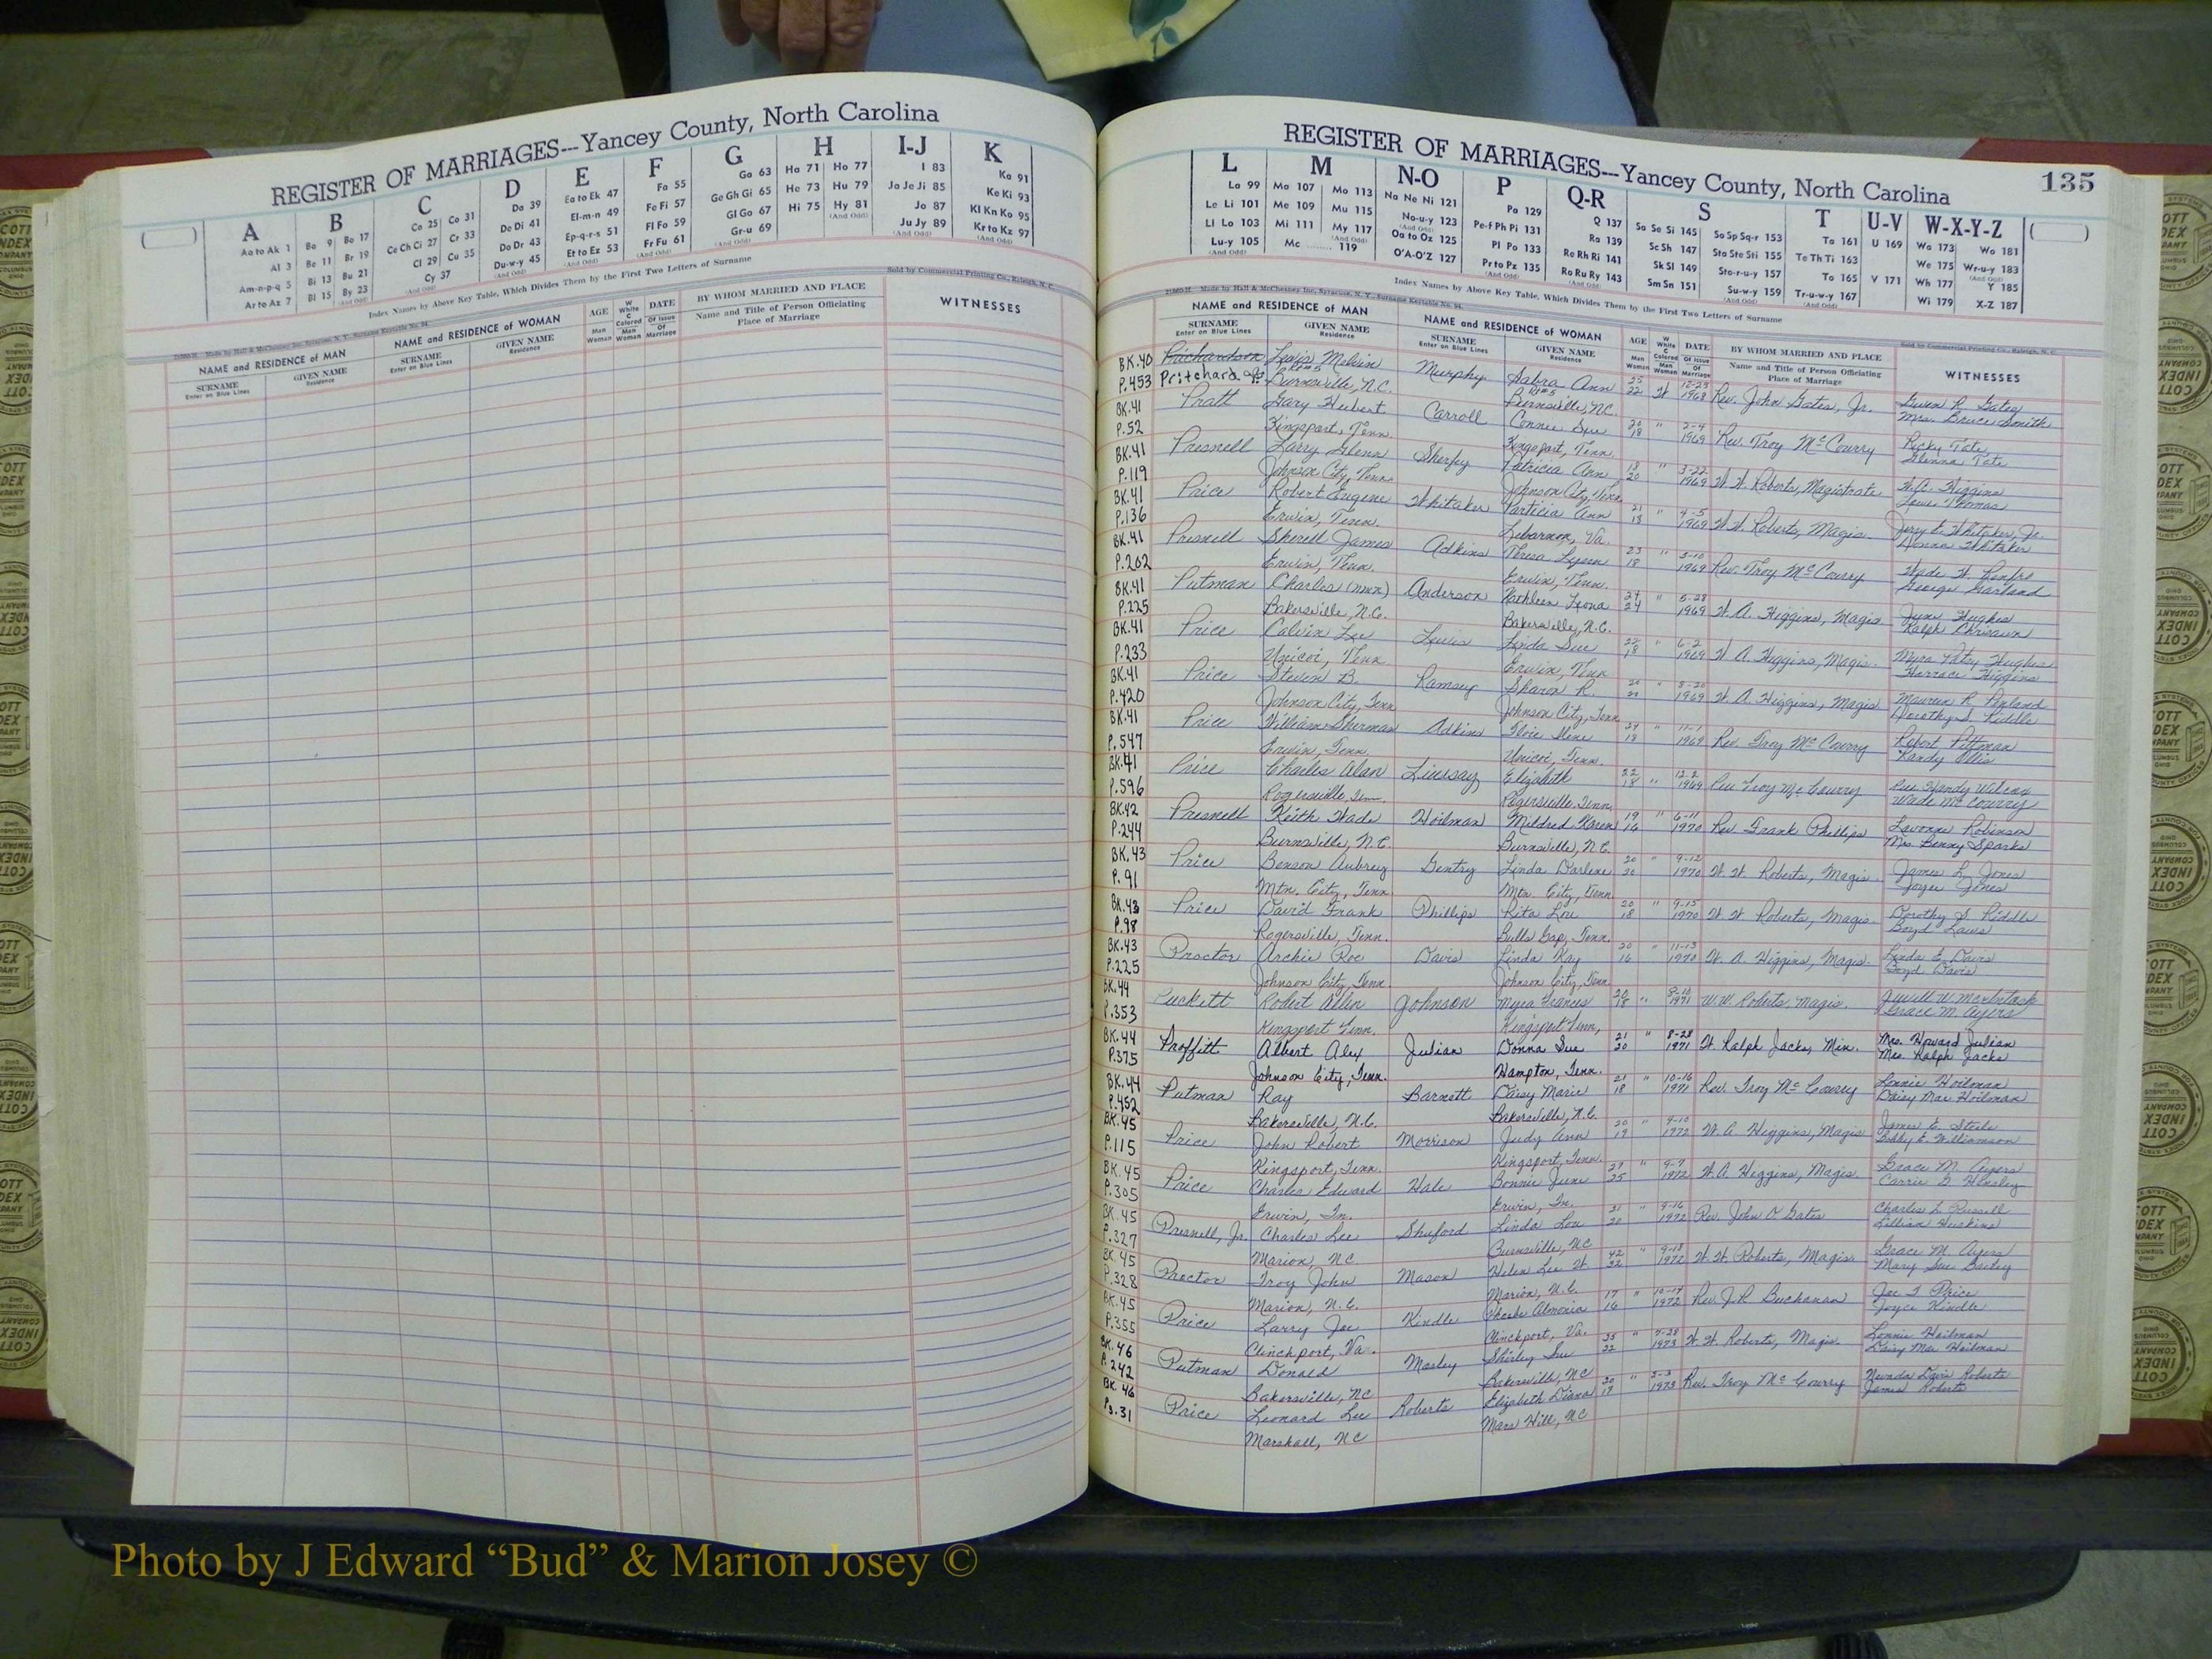 REGISTER OF MARRIAGES---Yancey County, North Carolina
A B C D E F G H I-J K
Aa to Ak 1
Al 3
Am-n-p-q 5
Ar to Az 7
Ba 9 Bo 17
Be 11 Br 19
Bi 13 Bu 21
Bl 15 By 23
(And Odd)
Ca 25 Co 31
Ce Ch Ci 27 Cr 33
Cl 29 Cu 35
Cy 37
(And Odd)
Da 39
De Di 41
Do Dr 43
Du-w-y 45
(And Odd)
Ea to Ek 47
El-m-n 49
Ep-q-r-s 51
Et to Ez 53
(And Odd)
Fa 55
Fe Fi 57
Fl Fo 59
Fr Fu 61
(And Odd)
Ga 63
Ge Gh Gi 65
Gl Go 67
Gr-u 69
(And Odd)
Ha 71 Ho 77
He 73 Hu 79
Hi 75 Hy 81
(And Odd)
I 83
Ja Je Ji 85
Jo 87
Ju Jy 89
(And Odd)
Ka 91
Ke Ki 93
Kl Kn Ko 95
Kr to Kz 97
(And Odd)
Index Names by Above Key Table, Which Divides Them by the First Two Letters of Surname
Sold by Commercial Printing Co., Raleigh, N. C.
NAME and RESIDENCE of MAN
SURNAME
Enter on Blue Lines
GIVEN NAME
Residence
NAME and RESIDENCE of WOMAN
SURNAME
Enter on Blue Lines
GIVEN NAME
Residence
AGE
Man
Woman
W
White
C
Colored
Man
Woman
DATE
Of Issue
Of
Marriage
BY WHOM MARRIED AND PLACE
Name and Title of Person Officiating
Place of Marriage
WITNESSES
REGISTER OF MARRIAGES---Yancey County, North Carolina 135
L M N-O P Q-R S T U-V W-X-Y-Z
La 99
Le Li 101
Li Lo 103
Lu-y 105
(And Odd)
Ma 107 Mo 113
Me 109 Mu 115
Mi 111 My 117
(And Odd)
Mc 119
Na Ne Ni 121
No-u-y 123
(And Odd)
Oa to Oz 125
O'A-O'Z 127
Pa 129
Pe-f Ph Pi 131
Pl Po 133
Pr to Pz 135
(And Odd)
Q 137
Ra 139
Re Rh Ri 141
Ro Ru Ry 143
(And Odd)
Sa Se Si 145 Sa Sp Sq-r 153
Sc Sh 147 Sta Ste Sti 155
Sk Sl 149 Sto-r-u-y 157
Sm Sn 151 Su-w-y 159
(And Odd)
Ta 161
Te Th Ti 163
To 165
Tr-u-w-y 167
(And Odd)
U 169
V 171
Wa 173 Wo 181
We 175 Wr-u-y 183
(And Odd)
Wh 177 Y 185
Wi 179 X-Z 187
Index Names by Above Key Table, Which Divides Them by the First Two Letters of Surname
21860-H Made by Hall & McChesney Inc, Syracuse, N. Y., Surname Keytable No. 94.
Sold by Commercial Printing Co., Raleigh, N. C.
NAME and RESIDENCE of MAN
SURNAME
Enter on Blue Lines
GIVEN NAME
Residence
NAME and RESIDENCE of WOMAN
SURNAME
Enter on Blue Lines
GIVEN NAME
Residence
AGE
Man
Woman
W
White
C
Colored
Man
Woman
DATE
Of Issue
Of
Marriage
BY WHOM MARRIED AND PLACE
Name and Title of Person Officiating
Place of Marriage
WITNESSES
BK.40 Richardson Lewis Melvin Murphy Sabra Ann 22 W 1968 Rev. John Gates, Jr. Gwen R. Gates
P.453 Pritchard Burnsville, N.C. Burnsville, N.C. Mrs. Bruce Smith
BK.41 Pratt Gary Hubert Carroll Connie Sue 20 18 " 2-4 1969 Rev. Troy McCourry Ricky Tate
P.52 Kingsport, Tenn. Kingsport, Tenn. Glenna Tate
BK.41 Presnell Larry Glenn Sherfey Patricia Ann 18 20 " 3-22 1969 W.W. Roberts, Magistrate W.A. Higgins
P.119 Johnson City, Tenn. Johnson City, Tenn. Thomas
BK.41 Price Robert Eugene Whitaker Particia Ann 21 18 " 4-5 1969 W.W. Roberts, Magis. Jerry E. Whitaker, Jr.
P.136 Erwin, Tenn. Lebarnon, Va. Donna Whitaker
BK.41 Presnell Sherell James Adkins Theresa 23 18 " 5-10 1969 Rev. Troy McCourry Wade W. Renfro
P.202 Erwin, Tenn. Erwin, Tenn. George Garland
BK.41 Putman Charles (nmn) Anderson Kathleen Leona 24 " 5-28 1969 W.A. Higgins, Magis June Hughes
P.225 Bakersville, N.C. Bakersville, N.C. Ralph Chrisawn
BK.41 Price Calvin Lee Lewis Linda Sue 22 18 " 6-2 1969 W.A. Higgins, Magis. Myra Patsy Hughes
P.233 Unicoi, Tenn. Erwin, Tenn. Horrace Higgins
BK.41 Price Steven B. Ramsey Sharon R. " 8-20 1969 W.A. Higgins, Magis Maureen R. Penland
P.420 Johnson City, Tenn. Johnson City, Tenn. Dorothy S. Riddle
BK.41 Price William Sherman Adkins 18 " 11-1 1969 Rev. Troy McCourry Robert Pittman
P.547 Erwin, Tenn. Unicoi, Tenn. Randy Ollis
BK.41 Price Charles Alan Linssay Elizabeth 22 18 " 12-2 1969 Rev Troy McCourry Rev. Handy Wilcox
P.596 Rogersville, Tenn. Rogersville, Tenn. Wade McCourry
BK.42 Presnell Keith Wade Hoilman Mildred Karen 19 16 " 6-11 1970 Rev. Frank Phillips Lavonne Robinson
P.244 Burnsville, N.C. Burnsville, N.C. Mrs. Benny Sparks
BK.43 Price Benson Aubrey Gentry Linda Darlene 20 20 " 9-12 1970 W.W. Roberts, Magis. James L. Jones
P.91 Mtn. City, Tenn Mtn. City, Tenn. Joyce Jones
BK.43 Price David Frank Phillips Rita Lou 20 18 " 9-15 1970 W.W. Roberts, Magis Dorothy S. Riddle
P.98 Rogersville, Tenn. Bulls Gap, Tenn. Boyd Laws
BK.43 Proctor Archie Roe Davis Linda Kay 20 16 " 11-13 1970 W.A. Higgins, Magis. Linda E. Davis
P.225 Johnson City, Tenn. Johnson City, Tenn. Boyd Davis
BK.44 Puckett Robert Allen Johnson Myra Frances 20 18 " 8-10 1971 W.W. Roberts, Magis. Jewell W. McIntosh
P.353 Kingsport Tenn. Kingsport Tenn. Grace M. Ayers
BK.44 Proffitt Albert Alex Julian Donna Sue 21 20 " 8-28 1971 W. Ralph Jacks, Min. Mrs. Howard Julian
P.375 Johnson City, Tenn. Hampton, Tenn. Mrs. Ralph Jacks
BK.44 Putman Ray Barnett Daisy Marie 21 18 " 10-16 1971 Rev. Troy McCourry Lonnie Hoilman
P.452 Bakersville, N.C. Bakersville, N.C. Daisy Mae Hoilman
BK.45 Price John Robert Morrison Judy Ann 20 19 " 4-10 1972 W.A. Higgins, Magis James E. Steele
P.115 Kingsport, Tenn. Kingsport, Tenn. Bobby E. Williamson
BK.45 Price Charles Edward Hale Bonnie June 27 25 " 9-9 1972 W.A. Higgins, Magis. Grace M. Ayers
P.305 Erwin, Tn. Erwin, Tn. Carrie D. Hensley
BK.45 Presnell, Jr. Charles Lee Shuford Linda Lou 21 20 " 9-16 1972 Rev. John O Gates Charles L. Russell
P.327 Marion, NC Burnsville, NC Lillian Huskins
BK.45 Proctor Troy John Mason Helen Lee W 42 32 " 9-18 1972 W.W. Roberts, Magis Grace M. Ayers
P.328 Marion, N.C. Marion, N.C. Mary Sue Bailey
BK.45 Price Larry Joe Kindle Phoebe Almonia 17 16 " 10-14 1972 Rev. J.R. Buchanan Joe T. Price
P.355 Clinchport, Va. Clinchport, Va. Joyce Kindle
BK.46 Putman Donald Mosley Shirley Sue 35 22 " 1973 W.W. Roberts, Magis. Lonnie Hoilman
P.242 Bakersville, NC Bakersville, NC Daisy Mae Hoilman
BK.46 Price Leonard Lee Roberts Elizabeth Diana 20 17 " 1973 Rev. Troy McCourry Nevada Davis Roberts
Pg.31 Marshall, NC Mars Hill, NC James Roberts
Photo by J Edward “Bud” & Marion Josey ©